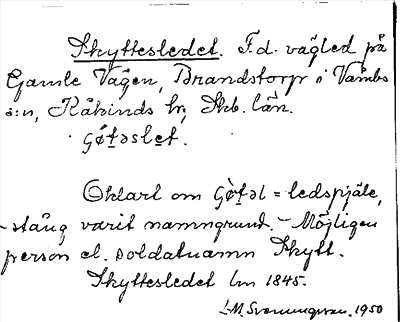 Skyttesledet. F.d. vägled på
Gamle Vägen, Brandstorp i Vambs
s:n, Kåkinds hd, Skb. län.
Oklart om = ledspjäle,
-stång varit namngrund. - Möjligen
person el. soldatnamn Skytt.
Skyttesledet Lm 1845.
1950